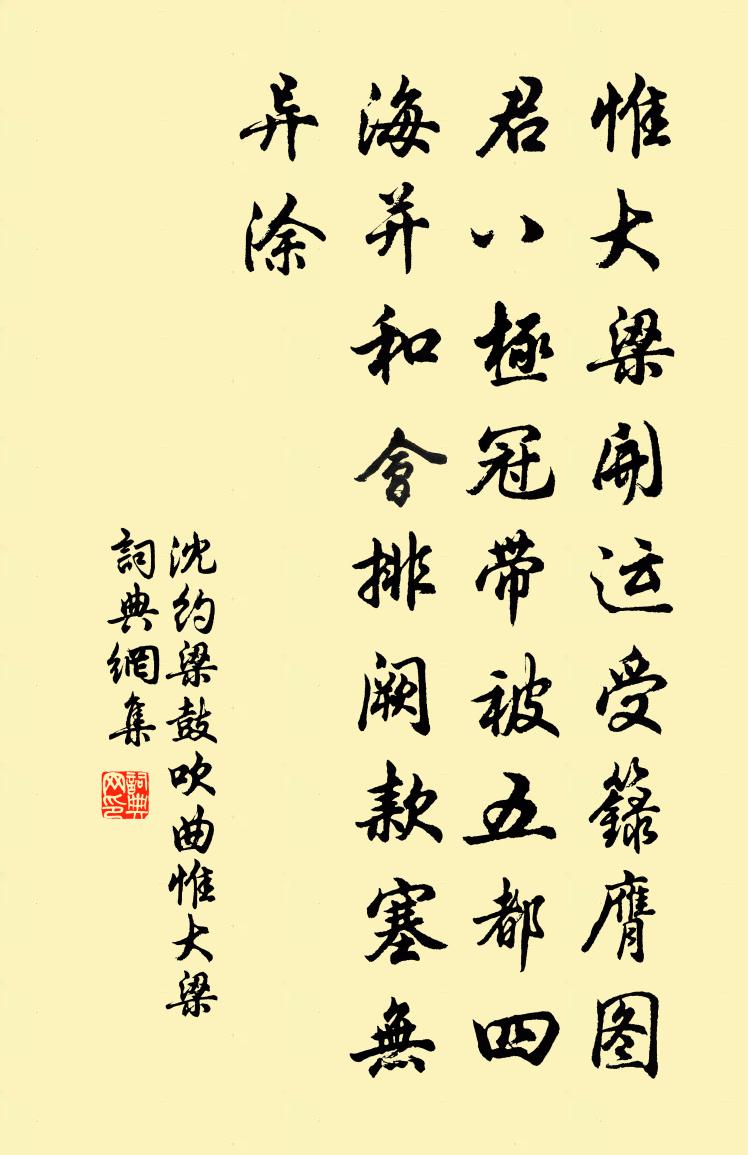 惟大梁開运受籙膺图
君八極冠带被五都四
海并和會排阙款塞無
异涂
沈约梁鼓吹曲惟大梁
詞典網集
詞典
网印